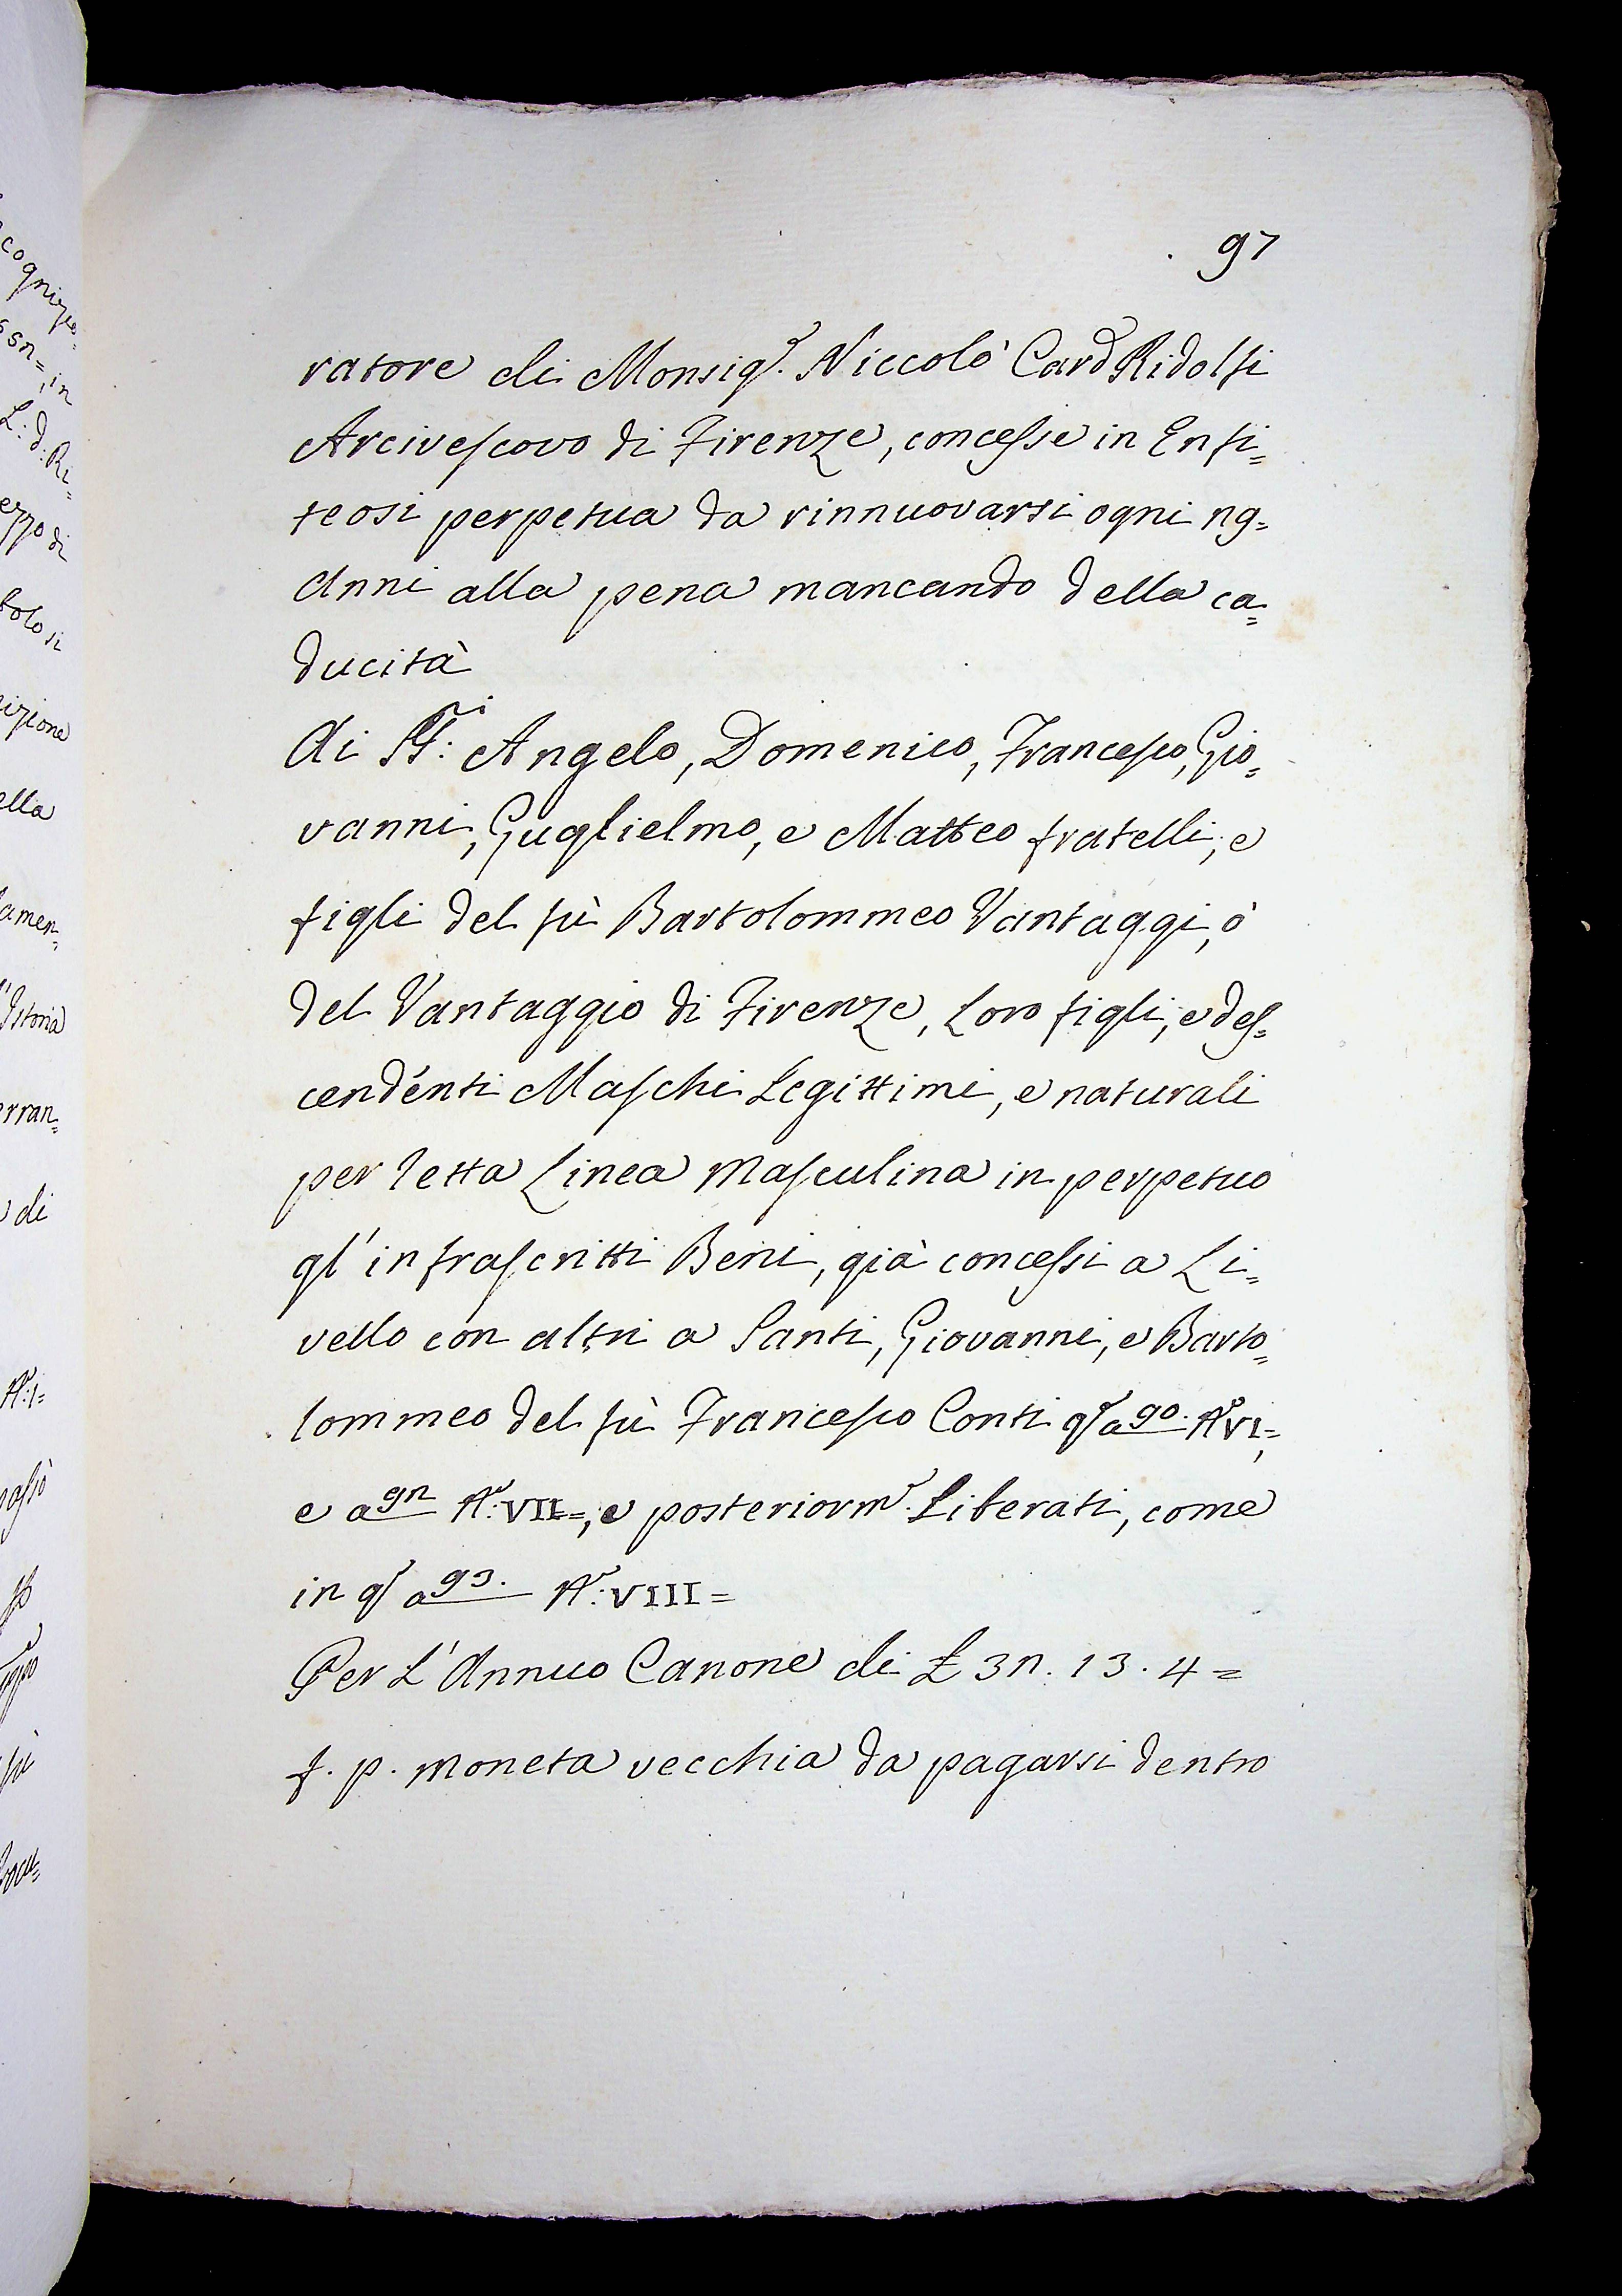 97
ratore di Monsig.r Niccolò Card Ridolfi
Arcivescovo di Firenze, concesse in Enfi=
teosi perpetua da rinnuovarsi ogni 29=
Anni alla pena mancando della ca=
ducità
Ai SS:ri Angelo, Domenico, Francesco, Gio=
vanni, Guglielmo, e Matteo fratelli, e
figli del fù Bartolommeo Vantaggi, ò
del Vantaggio di Firenze, Loro figli, e des=
cendenti Maschi Legittimi, e naturali
per retta Linea Masculina in perpetuo
gl'infrascritti Beni, già concessi a Li=
vello con altri a Santi, Giovanni, e Barto=
lommeo del fù Francesco Conti qſ a 90. N.o VI=,
e a 92 N.o: VII=, e posteriorm.e Liberati, come
in qſ a 93. N.o: VIII=
Per L'Annuo Canone di £ 32. 13. 4=
f. p. moneta vecchia da pagarsi dentro
ella
di